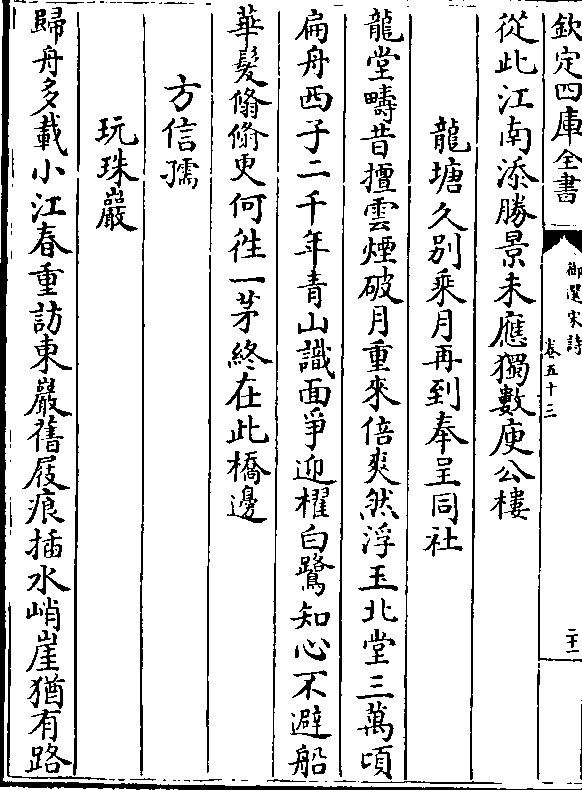 欽定四庫全書
御選宋詩
卷五十三
二十二
從此江南添勝景未應獨數庾公樓
龍塘久別乘月再到奉呈同社
龍堂疇昔擅雲煙破月重來倍爽然浮玉北堂三萬頃
扁舟西子二千年青山識面爭迎櫂白鷺知心不避船
華髮翛翛更何徃一茅終在此橋邊
方信孺
玩珠巖
歸舟多載小江春重訪東巖舊屐痕插水峭崖猶有路